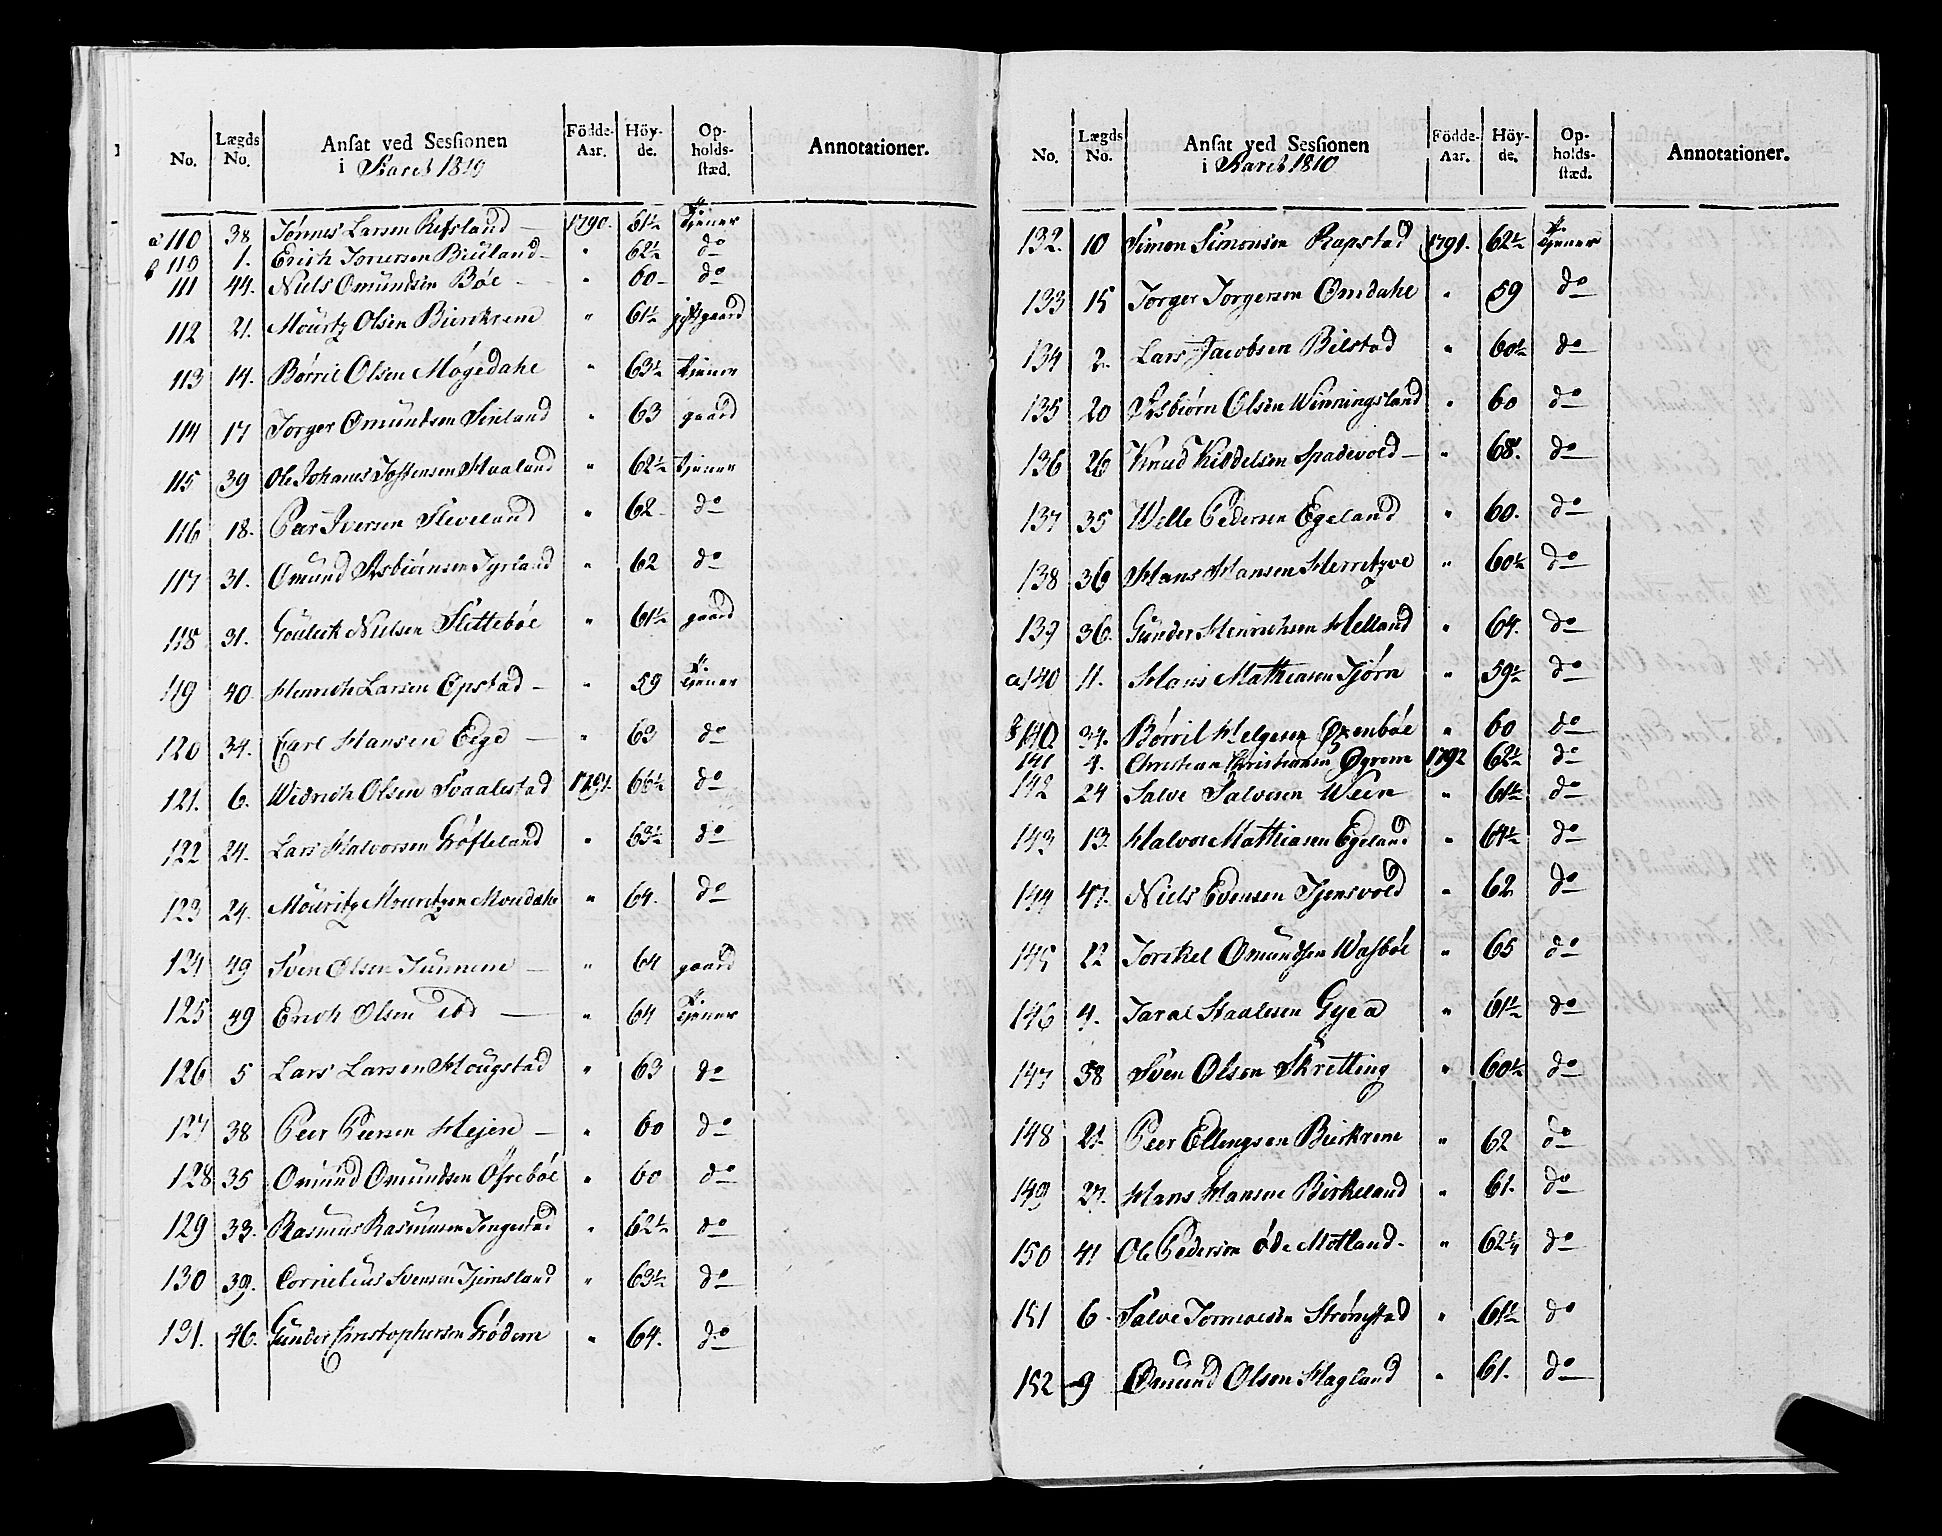 No. Lægds No. Ansat ved Sessionen i Aaret 1810 Födde-Aar. Höy-de. Op-holds-stæd. Annotationer.
a 110 38 Tønnes Larsen Refsland — 1790. 61½ Tjener
b 110 1. Erich Tonnesen Birüland — " 62½ do
111 44. Niels Omündsen Bøe - " 60 - do
112 21. Mouritz Olsen Bierkrem " 61½ gaard
113 14. Børril Olsen Møgedahl " 63½ Tjener
114 17 Torger Omündsen Sinland " 63 gaard
115 39 Ole Johanes Tostensen Haaland " 62½ Tjener
116 18. Peer Iversen Sleveland " 62 - do
117 31. Omünd Asbiørnsen Tyrland " 62 do
118 31. Goüleik Nielsen Slettebøe " 61½ gaard
119 40. Henrich Larsen Epstad — " 59 Tjener
120 34. Carl Hansen Eege — " 63 do
121. 6. Widrich Olsen Svaalestad 1791. 66½ do
122 24. Lars Halvorsen Grøfteland " 63½ do
123 24. Mouritz Mouritzen Moudahl " 64. do
124 49 Sven Olsen Tünnene — " 64 gaard
125 49 Erich Olsen ibd — " 64 Tjener
126 5 Lars Larsen Hougstad " 63 do
127 38 Peer Peersen Hejen — " 60 do
128 35 Omünd Omündsen Øfrebøe " 60 do
129 33. Rasmus Rasmusen Tengestad " 62½ do
130 39. Cornelius Svensen Tjernsland " 63½ do
131. 46. Günder Christophersen Grødem " 64. do
No. Lægds No. Ansat ved Sessionen i Aaret 1810 Födde-Aar. Höy-de. Op-holds-stæd. Annotationer.
132. 10 Simon Simonsen Rapstad 1791. 62½ Tjener
133 15 Torger Torgersen Omdahl " 59 do
134 2. Lars Jacobsen Bilstad " 60½ do
135 20 Asbiørn Olsen Winningsland " 60 do
136 26 Knud Kiddelsen Spadevold — " 68. do
137 35 Welle Pedersen Egeland " 60. do
138 36 Hans Hansen Herretzve " 60½ do
139 36. Günder Henrichsen Helland " 64. do
a 140 11. Hans Mathiasen Tjørn " 59½ do
b 140 34. Børril Helgesen Øxenbøe " 60 do
141 4. Christian Christiansen Øgrene 1792 62½ do
142 24 Salve Salvesen Ween " 61½ do
143 13. Halvor Mathiasen Egeland " 64½ do
144 47. Niels Evensen Tjensvold " 62 do
145 22 Torkel Omundsen Wasbøe " 65 do
146 4. Taral Staalesen Gyea " 61½ do
147 38 Sven Olsen Skretting " 60½ do
148 21. Peer Ellingsen Bierkrem " 62 do
149 27. Hans Hansene Birkeland " 61. do
150 41 Ole Pederson øde Motland - " 62¼ do
151 6 - Salve Tormodsen Strømstad " 61½ do
152 9 Omünd Olsen Hagland " 61. do